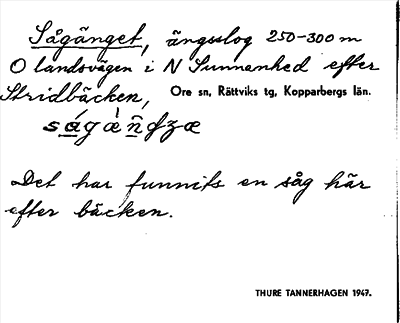 Sågänget, ängsslog 250-300 m
O landsvägen i N Sunnanhed efter
Stridbäcken, Ore sn, Rättviks tg, Kopparbergs län.
Det har funnits en såg här
efter bäcken.
THURE TANNERHAGEN 1947.